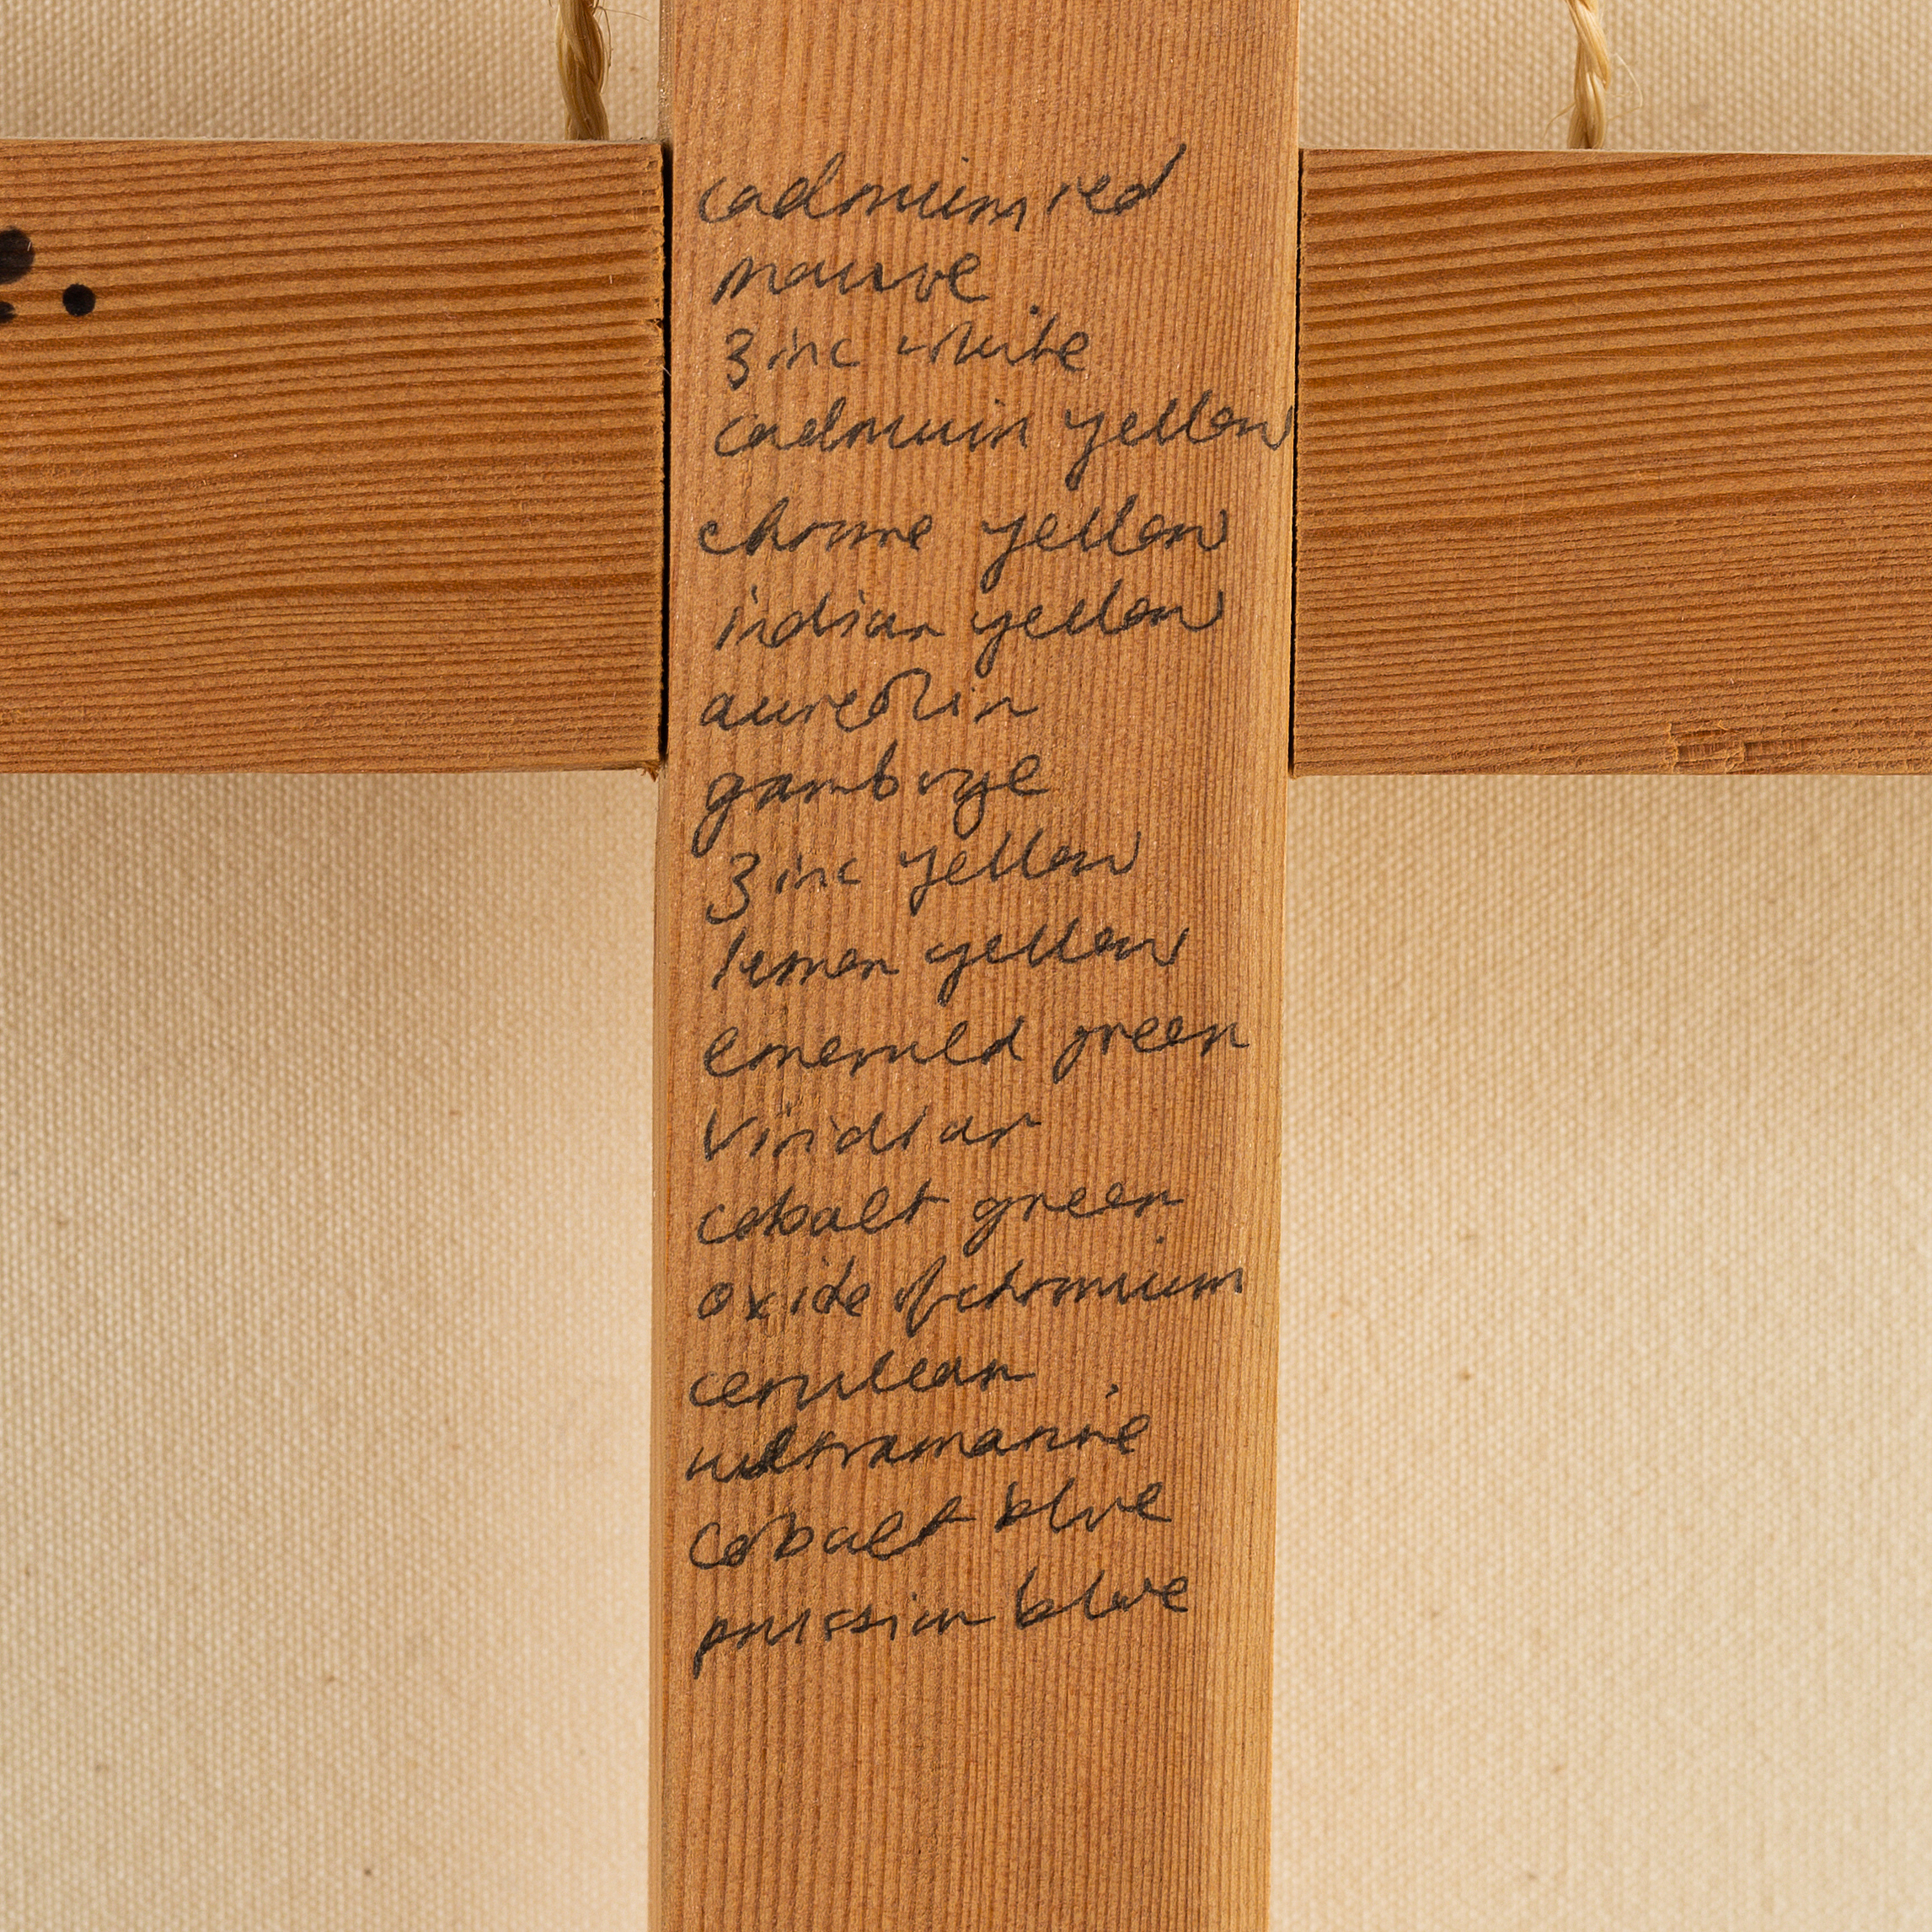 cadmium red
mauve
zinc white
cadmium yellow
chrome yellow
indian yellow
aureolin
gamboge
zinc yellow
lemon yellow
emerald green
viridian
cobalt green
oxide of chromium
cerulean
ultramarine
cobalt blue
prussian blue